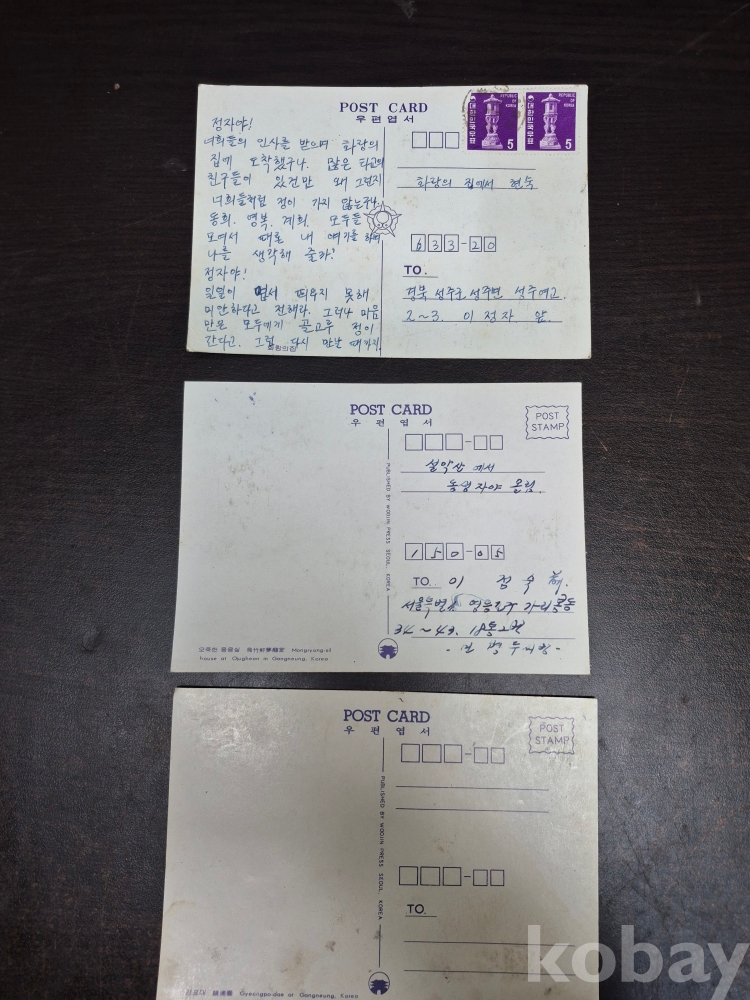 POST CARD
우편엽서
REPUBLIC OF KOREA
대한민국우표
5
REPUBLIC OF KOREA
대한민국우표
5
정자야!
너희들의 인사를 받으며 화랑의
집에 도착했구나. 많은 타교의
친구들이 있건만 왜 그런지
너희들처럼 정이 가지 않는구나.
동희. 영복. 계희. 모두들
모여서 때로 내 얘기를 하며
나를 생각해 줄까?
정자야!
일일이 엽서 띄우지 못해
미안하다고 전해라. 그러나 마음
만은 모두에게 골고루 정이
간다고. 그럼 다시 만날 때까지.
화랑의 집에서 현숙
633-20
TO.
경북 성주군 성주면 성주여고
2~3. 이정자 앞.
POST CARD
우편엽서
POST STAMP
설악산에서
올림.
150-05
TO. 이 정숙
서울특별시 영등포구
34~43. 18통2반
PUBLISHED BY WOOJIN PRESS SEOUL, KOREA
오죽헌 몽룡실 烏竹軒夢龍室 Mongryong-sil
house at Ojugheon in Gangneung, Korea
POST CARD
우편엽서
POST STAMP
TO.
PUBLISHED BY WOOJIN PRESS SEOUL, KOREA
경포대 鏡浦臺 Gyeongpo-dae at Gangneung, Korea
kobay